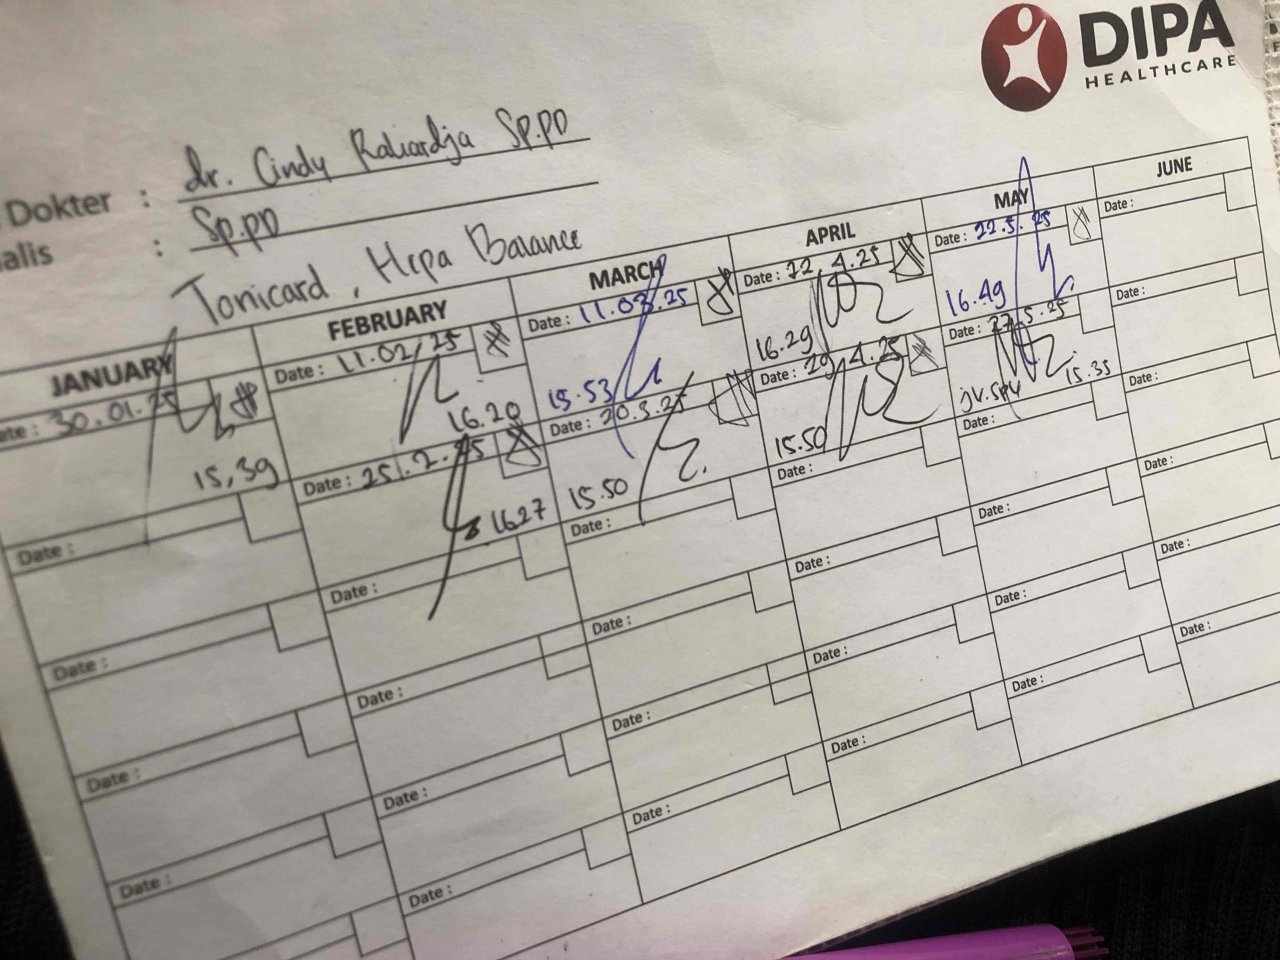 DIPA
HEALTHCARE
Dokter : dr. Cindy Rahardja Sp.PD
alis : Sp.PD
Tonicard, Hepa Balance
JANUARY FEBRUARY MARCH APRIL MAY JUNE
ate : 30.01.25 Date : 11.02.25 Date : 11.03.25 Date : 22.4.25 Date : 22.5.25 Date :
15,39 16.20 15.53 16.29 16.49
Date : Date : 25.2.25 Date : 20.3.25 Date : 29.4.25 Date : 27.5.25 Date :
16.27 15.50 15.50 15.35
Date : Date : Date : Date : Date : Date :
Date : Date : Date : Date : Date : Date :
Date : Date : Date : Date : Date : Date :
Date : Date : Date : Date : Date : Date :